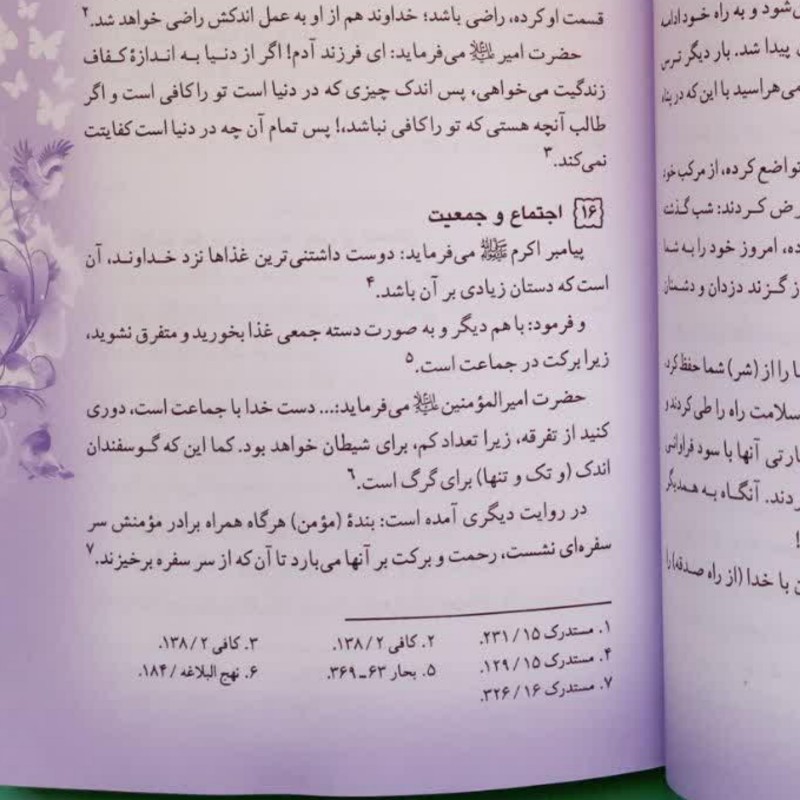 قسمت او کرده، راضی باشد؛ خداوند هم از او به عمل اندکش راضی خواهد شد.۲
حضرت امیر علیه‌السلام می‌فرماید: ای فرزند آدم! اگر از دنیا به اندازهٔ کفاف
زندگیت می‌خواهی، پس اندک چیزی که در دنیا است تو را کافی است و اگر
طالب آنچه هستی که تو را کافی نباشد،! پس تمام آن چه در دنیا است کفایتت
نمی‌کند.۳
۱۶ اجتماع و جمعیت
پیامبر اکرم ﷺ می‌فرماید: دوست داشتنی‌ترین غذاها نزد خداوند، آن
است که دستان زیادی بر آن باشد.۴
و فرمود: با هم دیگر و به صورت دسته جمعی غذا بخورید و متفرق نشوید،
زیرا برکت در جماعت است.۵
حضرت امیرالمؤمنین علیه‌السلام می‌فرماید:... دست خدا با جماعت است، دوری
کنید از تفرقه، زیرا تعداد کم، برای شیطان خواهد بود. کما این که گوسفندان
اندک (و تک و تنها) برای گرگ است.۶
در روایت دیگری آمده است: بندهٔ (مؤمن) هرگاه همراه برادر مؤمنش سر
سفره‌ای نشست، رحمت و برکت بر آنها می‌بارد تا آن که از سر سفره برخیزند.۷
۱. مستدرک ۱۵ / ۲۳۱. ۲. کافی ۲ / ۱۳۸. ۳. کافی ۲ / ۱۳۸.
۴. مستدرک ۱۵ / ۱۲۹. ۵. بحار ۶۳ ـ ۳۶۹. ۶. نهج البلاغه / ۱۸۴.
۷. مستدرک ۱۶ / ۳۲۶.
می‌شود و به راه خود ادامه
پیدا شد. بار دیگر ترس
می‌هراسید با این که در پناه
تواضع کرده، از مرکب خود
عرض کردند: شب گذشته
امروز خود را به شما
از گزند دزدان و دشمنان
را از (شر) شما حفظ کرد،
سلامت راه را طی کردند و
آنها با سود فراوانی
آنگاه به همدیگر
!
با خدا (از راه صدقه) را